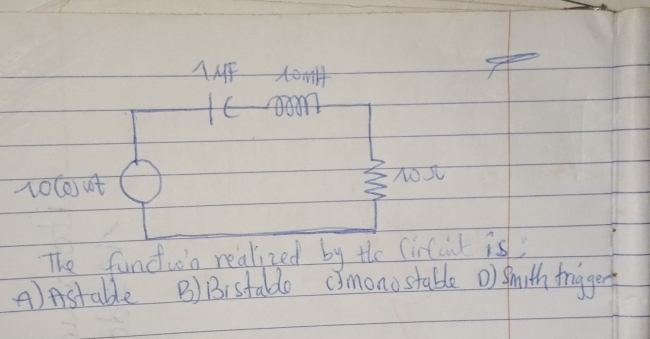 1MF 10mH
10cosωt 10Ω
The function realized by the Circuit is:
A) Astable B) Bistable C) monostable D) Smith trigger